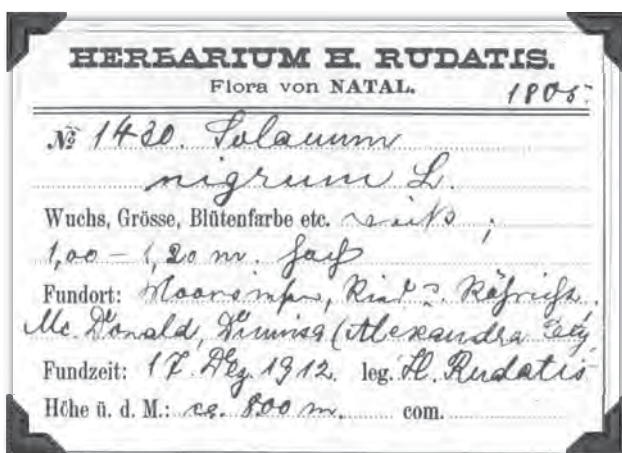 HERBARIUM H. RUDATIS.
Flora von NATAL.
1805.
№ 1430. Solanum
nigrum L.
Wuchs, Grösse, Blütenfarbe etc. weiß ;
1,00 – 1,20 m. hoch
Fundort:
Mc. Donald, (Alexandra
Fundzeit: 17. Dez. 1912. leg. H. Rudatis
Höhe ü. d. M.: ca. 800 m. com.